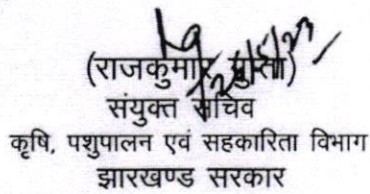 (राजकुमार गुप्ता)
संयुक्त सचिव
कृषि, पशुपालन एवं सहकारिता विभाग
झारखण्ड सरकार